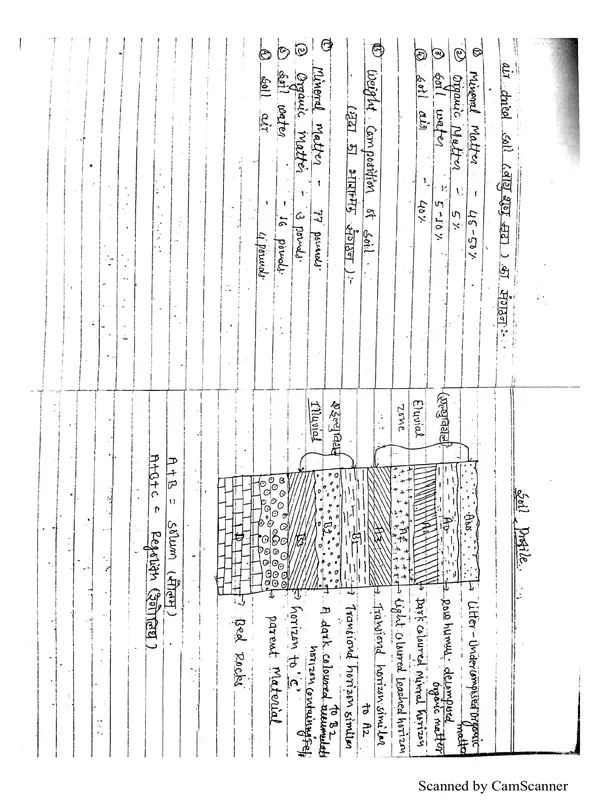 air dried soil (वायु शुष्क मृदा) का संगठन :-
① Mineral Matter - 45-50%
② Organic Matter - 5%
③ Soil water - 5-10%
④ Soil air - 40%
⑤ Weight Composition of Soil
(मृदा का भारात्मक संगठन) :-
① Mineral Matter - 77 pounds.
② Organic Matter - 3 pounds.
③ Soil water - 16 pounds.
④ Soil air - 4 pounds.
Soil Profile.
Litter - Undercomposed organic matter
Raw humus - decomposed organic matter
Dark coloured mineral horizon
Light coloured leached horizon
Transiond horizon similar to A2
Transiond horizon similar to B2
A dark coloured accumulate horizon containing
horizon to 'C'
parent Material
Bed Rocks
Eluvial zone
Illuvial
A1
A2
A3
B1
B2
B3
C
D
A+B = Solum (सोलम)
A+B+C = Regolith (रेगोलिथ)
Scanned by CamScanner